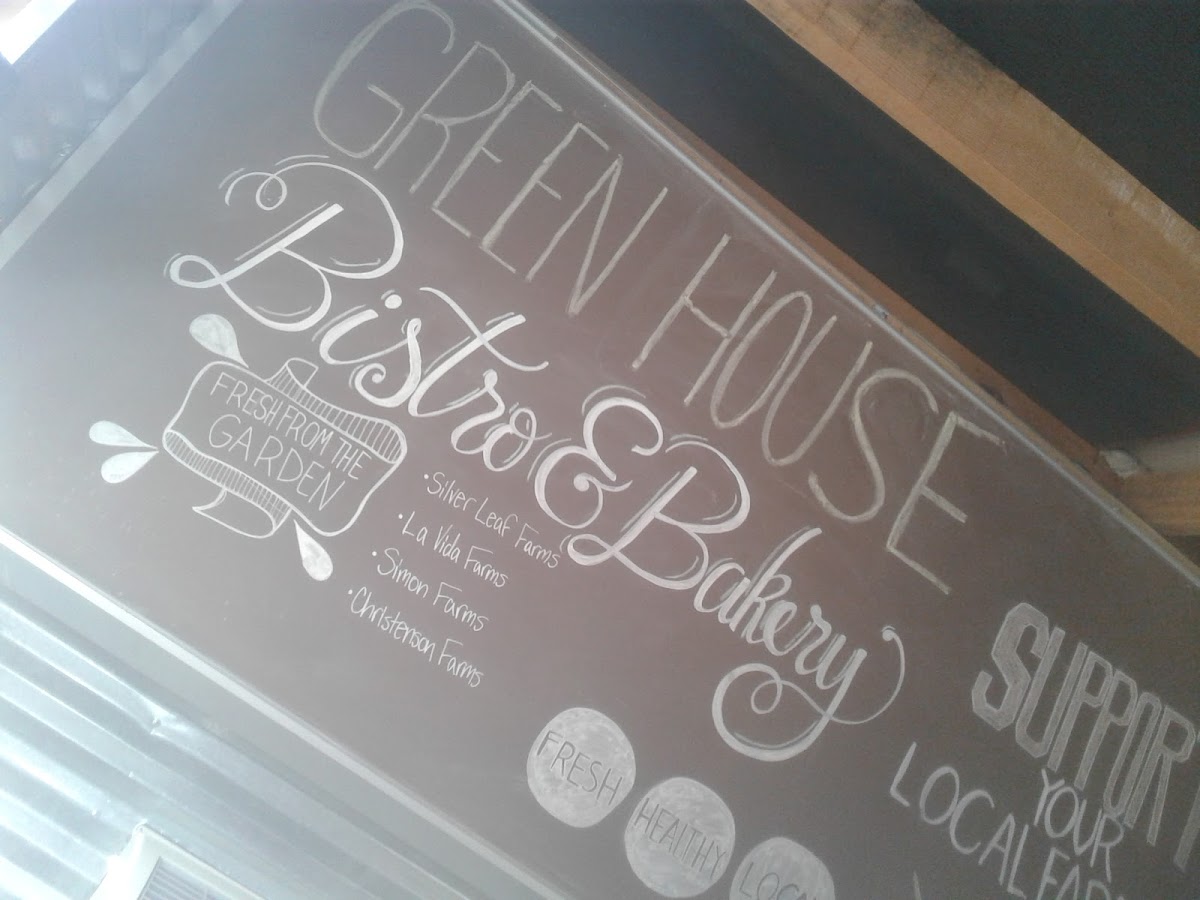 GREEN HOUSE
Bistro & Bakery
FRESH FROM THE
GARDEN
• Silver Leaf Farms
• La Vida Farms
• Simon Farms
• Christenson Farms
FRESH
HEALTHY
SUPPORT
YOUR
LOCAL